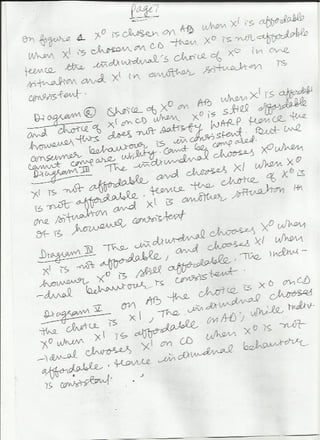 Page 7
on figure 1 X⁰ is chosen on AB when X¹ is affordable
when X¹ is chosen on CD then X⁰ is not affordable
Hence the individual's choice of X⁰ in one
situation and X¹ in another situation is
consistent.
Diagram 2 Choice of X⁰ on AB when X¹ is affordable
and choice of X¹ on CD when X⁰ is still affordable
however this does not satisfy WARP. Hence the
consumer behaviour is inconsistent. But we
cannot compare utility can't be compared
Diagram III The individual chooses X⁰ when
X¹ is not affordable and chooses X¹ when X⁰
is not affordable. Hence the choice of X⁰ is
one situation and X¹ is another situation
is however consistent
Diagram IV The individual chooses X⁰ when
X¹ is not affordable, and chooses X¹ when
however X⁰ is still affordable. The indivi-
-dual behaviour is consistent.
Diagram V on AB the choice is X⁰ on CD
the choice is X¹, The individual chooses
X⁰ when X¹ is affordable on AB, while indiv-
-idual chooses X¹ on CD when X⁰ is not
affordable. Hence individual behaviour
is consistent.